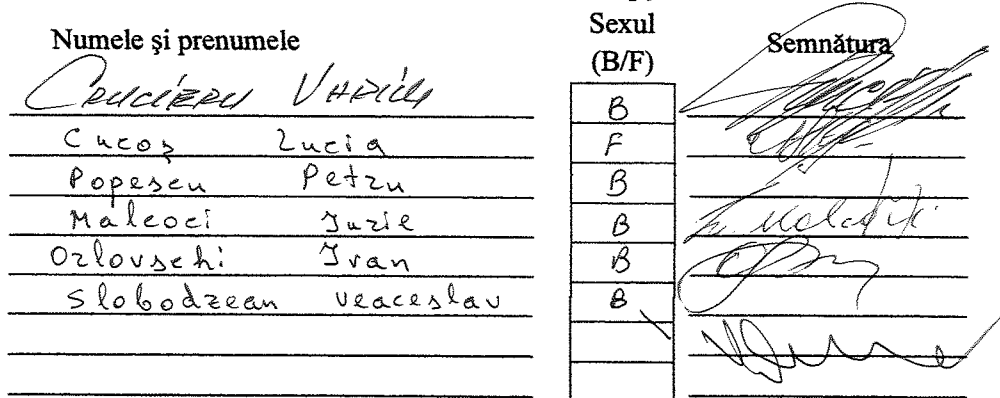 Numele şi prenumele Sexul (B/F) Semnătura
Cruciеru Vasile B
Cucoş Lucia F
Popescu Petru B
Malcoci Iurie B
Orlovschi Ivan B
Slobodzean Veaceslav B